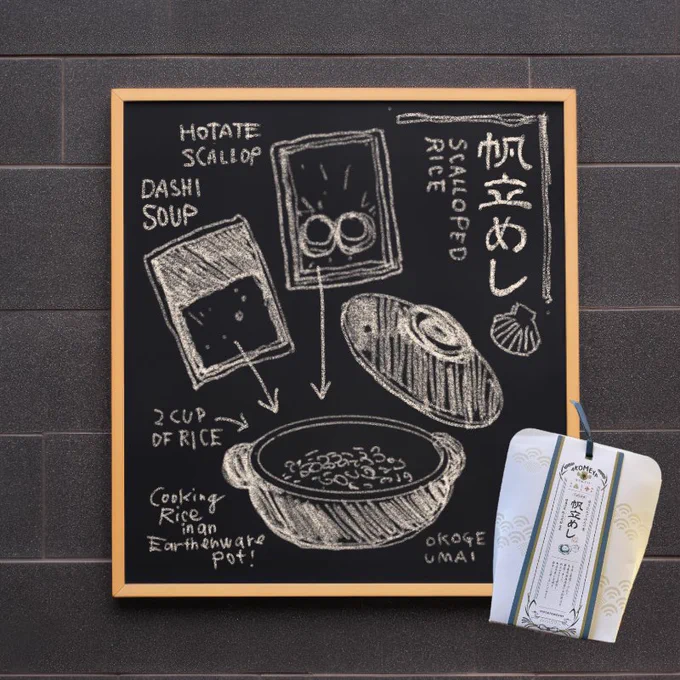 帆立めし
SCALLOPED
RICE
HOTATE
SCALLOP
DASHI
SOUP
2 CUP
OF RICE
Cooking
Rice
in an
Earthenware
pot!
OKOGE
UMAI
帆立めし